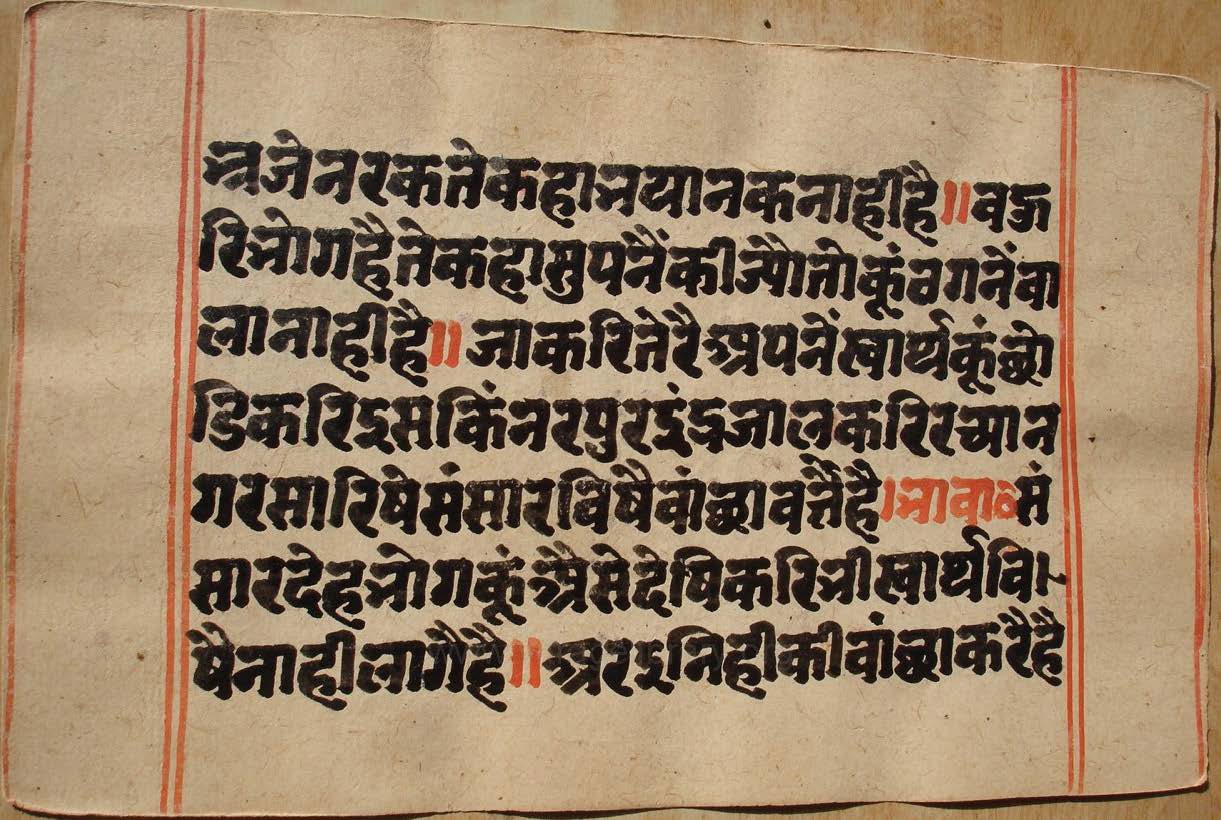 न्न जे नरक ते कहा भयानक नाही है ॥ वऊ
रि भोग है ते कहा सुपनैं की ज्यौ तोकूं ठगनें वा
ला नाही है ॥ जाकरि तेरै अपनें स्वार्थकूं छो
डि करि इस किंनरपुर इंद्रजाल करि रच्या न
गर सारिषे संसार विषै वांछा वर्त्तै है । भावा॰ सं
सार देह भोगकूं औसे देषि करि भी स्वार्थ वि
षै नाही लागै है ॥ अर इनिही की वांछा करै है